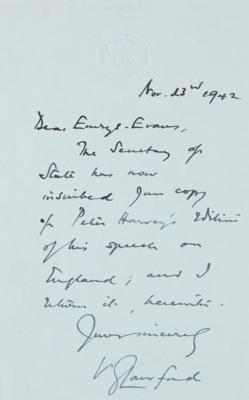 Nov. 23rd 1942
Dear Emrys-Evans,
The Secretary of
State has now
inscribed your copy
of Peter Harvey's Edition
of his speech on
England; and I
return it, herewith.
Yours sincerely